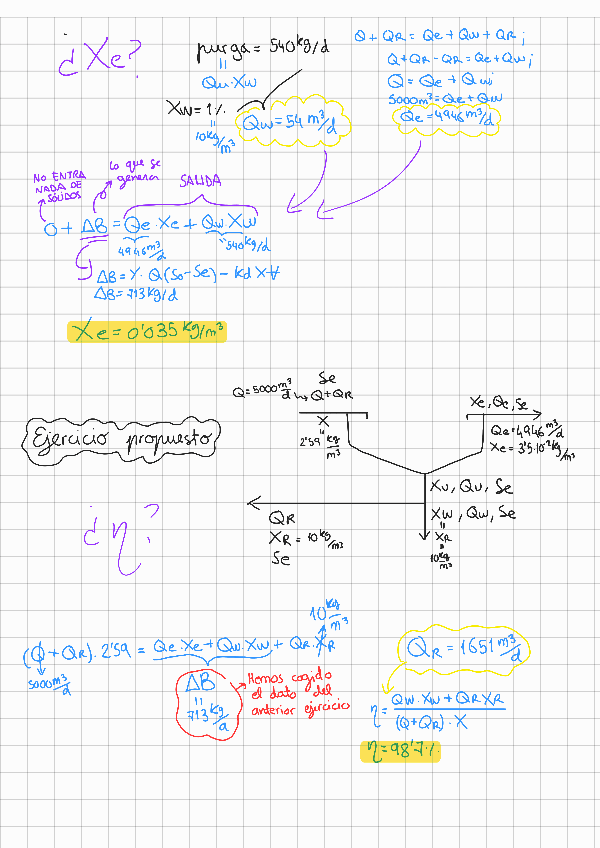 ¿Xe?
purga = 540 kg/d
=
Qw·Xw
Xw = 1%
=
10 kg/m³
Qw = 54 m³/d
Q + QR = Qe + Qw + QR ;
Q + QR - QR = Qe + Qw ;
Q = Qe + Qw ;
5000 m³ = Qe + Qw
Qe = 4946 m³/d
NO ENTRA
NADA DE
SÓLIDOS
Lo que se
genera
SALIDA
0 + ΔB = Qe · Xe + Qw Xw
4946 m³/d
540 kg/d
ΔB = Y · Q (So - Se) - Kd X V
ΔB = 713 kg/d
Xe = 0'035 kg/m³
Ejercicio propuesto
Se
Q = 5000 m³/d
Q + QR
X
=
2'59 kg/m³
Xe, Qe, Se
Qe = 4946 m³/d
Xe = 3'5·10⁻² kg/m³
Xu, Qu, Se
Xw, Qw, Se
=
XR
=
10 kg/m³
QR
XR = 10 kg/m³
Se
¿η?
10 kg/m³
(Q + QR) · 2'59 = Qe · Xe + Qw · Xw + QR · XR
5000 m³/d
ΔB
=
713 kg/d
Hemos cogido
el dato del
anterior ejercicio
QR = 1651 m³/d
η = Qw · Xw + QR XR / (Q + QR) · X
η = 98'7%